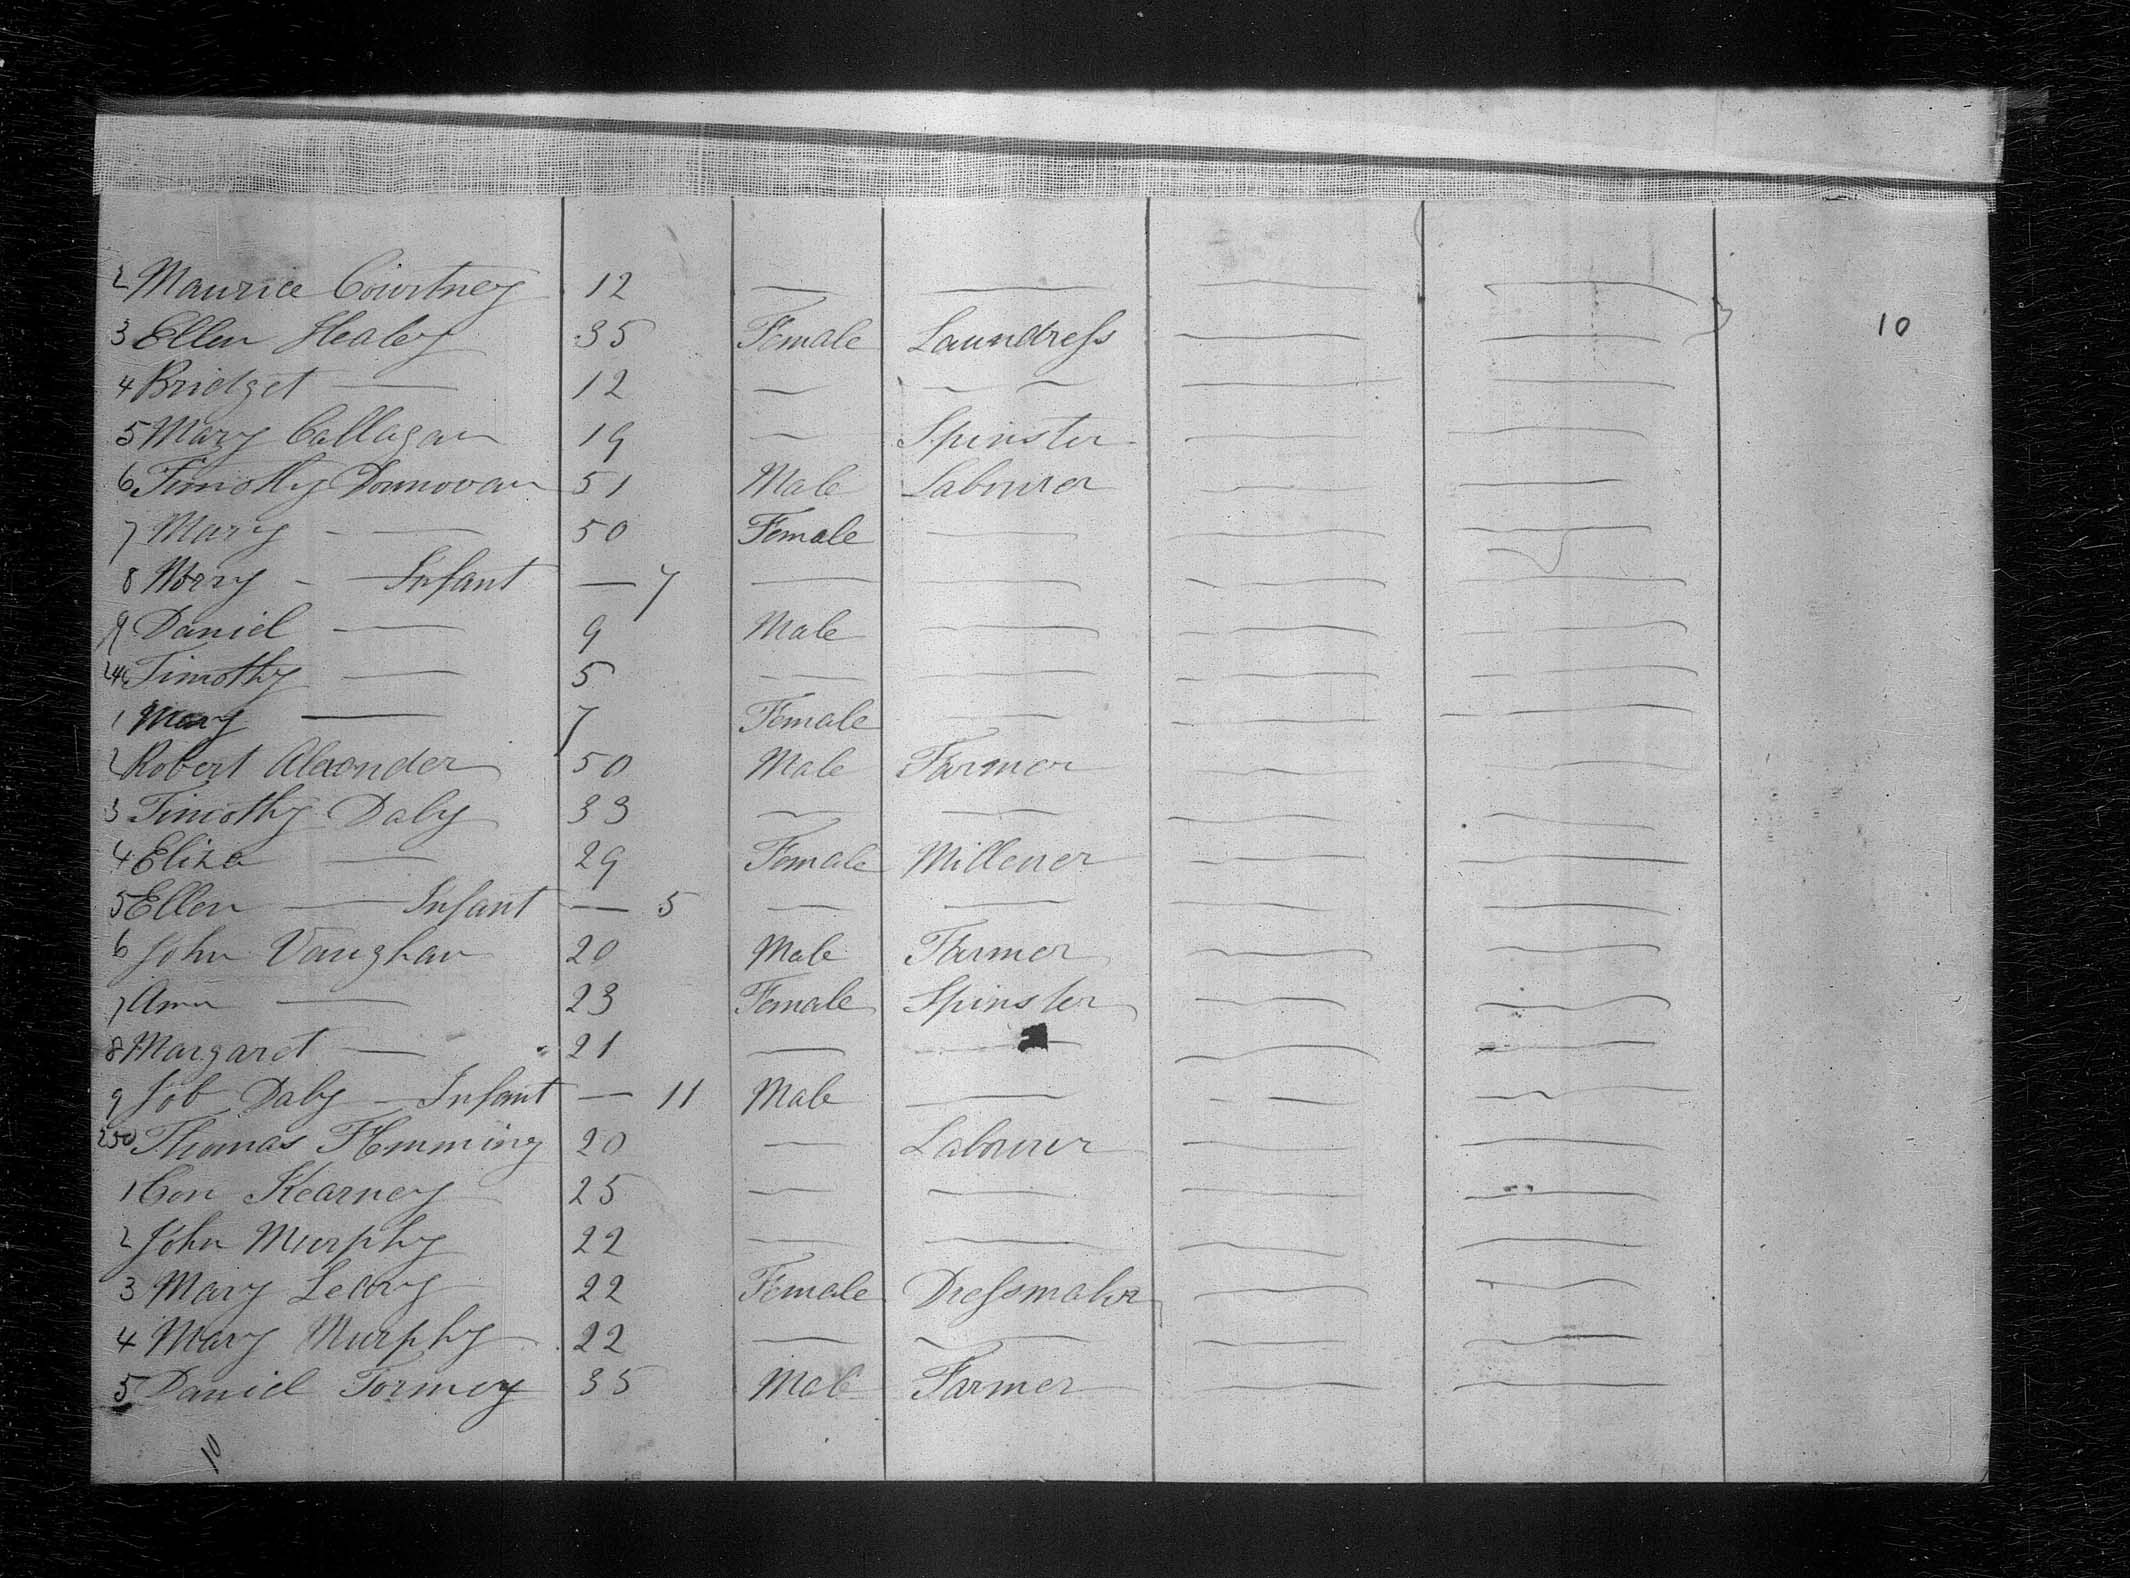 2 Maurice Courtney 12 — — — —
3 Ellen Healey 35 Female Laundress — — 10
4 Bridget — 12 — — — —
5 Mary Callagan 19 — Spinster — —
6 Timothy Donnovan 51 Male Labourer — —
7 Mary — 50 Female — — —
8 Mary — Infant — 7 — — — —
9 Daniel — 9 Male — — —
240 Timothy — 5 — — — —
1 Mary — 7 Female — — —
2 Robert Alexander 50 Male Farmer — —
3 Timothy Daly 33 — — — —
4 Eliza — 29 Female Millener — —
5 Ellen — Infant — 5 — — — —
6 John Vaughan 20 Male Farmer — —
7 Ann — 23 Female Spinster — —
8 Margaret — 21 — — — —
9 Job Daly — Infant — 11 Male — — —
250 Thomas Flemming 20 — Labourer — —
1 Con Kearney 25 — — — —
2 John Murphy 22 — — — —
3 Mary Leary 22 Female Dressmaker — —
4 Mary Murphy 22 — — — —
5 Daniel Tormey 35 Male Farmer — —
10